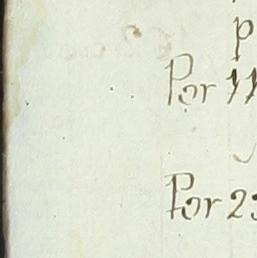 p
Por 11
Por 23